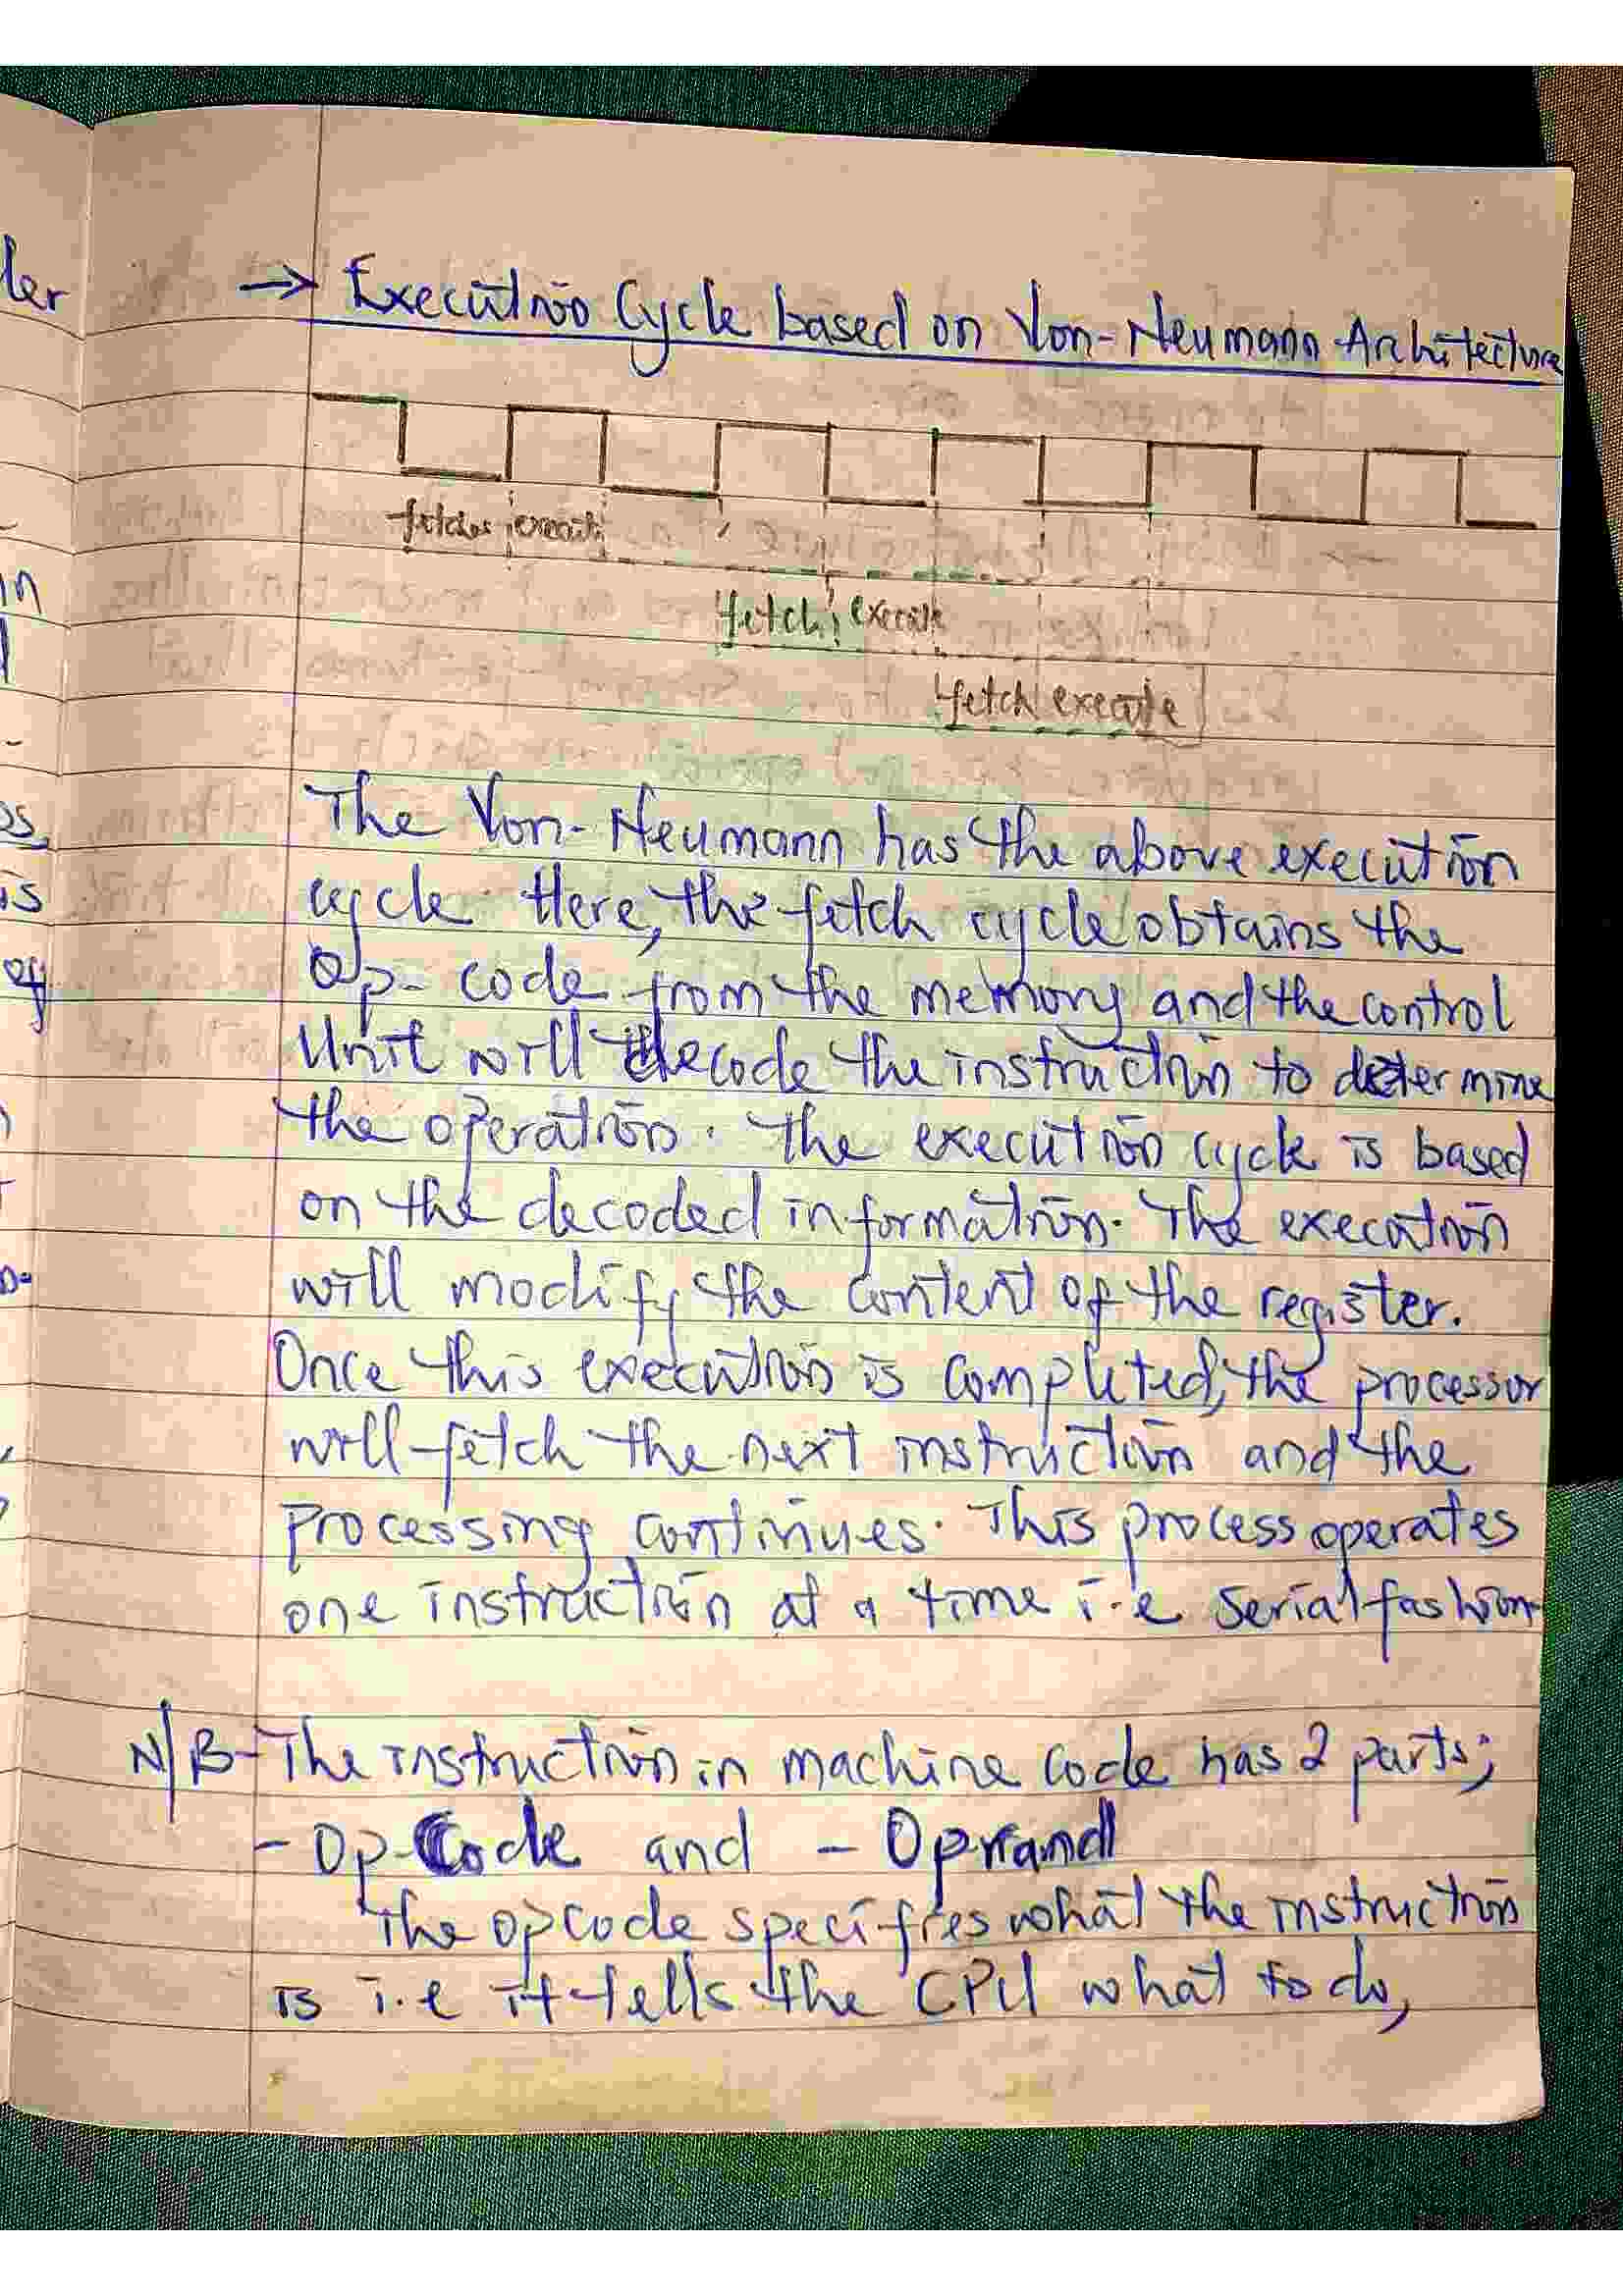 → Execution Cycle based on Von-Neumann Architecture
fetches execute
fetch execute
fetch execute
The Von-Neumann has the above execution
cycle. Here, the fetch cycle obtains the
Op-code from the memory and the control
Unit will decode the instruction to determine
the operation. The execution cycle is based
on the decoded information. The execution
will modify the content of the register.
Once this execution is completed, the processor
will fetch the next instruction and the
processing continues. This process operates
one instruction at a time i.e serial fashion.
N/B- The instruction in machine code has 2 parts;
- Op-Code and - Oprand
The opcode specifies what the instruction
is i.e it tells the CPU what to do,